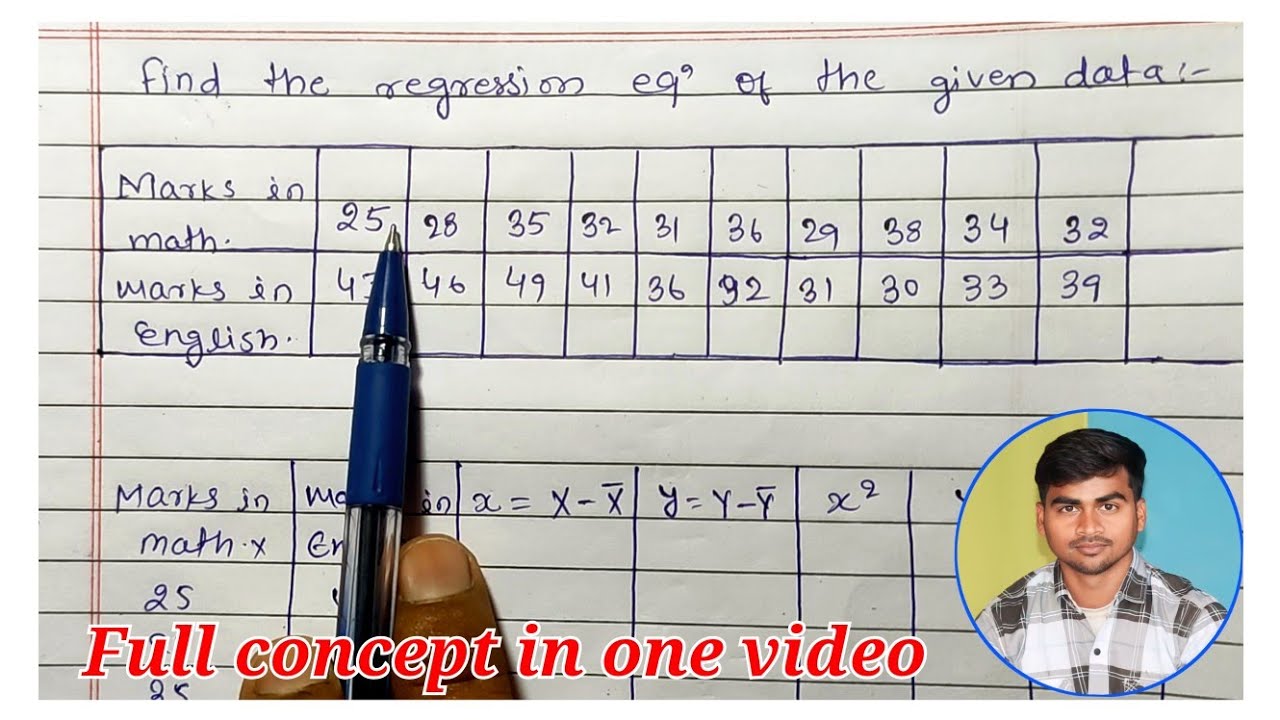 find the regression eqⁿ of the given data:-
Marks in math. 25 28 35 32 31 36 29 38 34 32
Marks in English. 46 49 41 36 32 31 30 33 39
Marks in math. X in x = X - X̄ y = Y - Ȳ x²
25
Full concept in one video